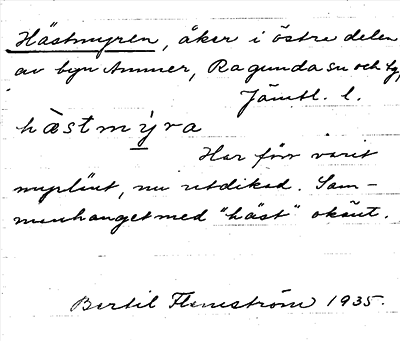 Hästmyren, åker i östra delen
av byn Ammer, Ragunda sn och tg,
Jämtl. l.
hàstmỳ̱ra
Har förr varit
myrlänt, nu utdikad. Sam-
menhanget med "häst" okänt.
Bertil Flemström 1935.